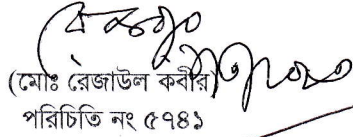 (মোঃ রেজাউল কবীর)
পরিচিতি নং ৫৭৪১